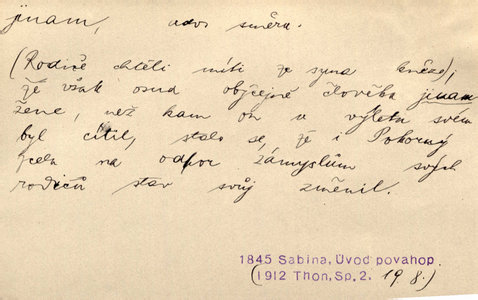 jinam, adv. směru.
(Rodiče chtěli míti ze syna kněze);
že však osud obyčejně člověka jinam
žene, než kam on v výletu svém
byl cítil, stalo se, že i Pokorný
zcela na odpor zámyslům svých
rodičů stav svůj změnil.
1845 Sabina, Úvod povahop.
(1912 Thon, Sp. 2. 19 8.)